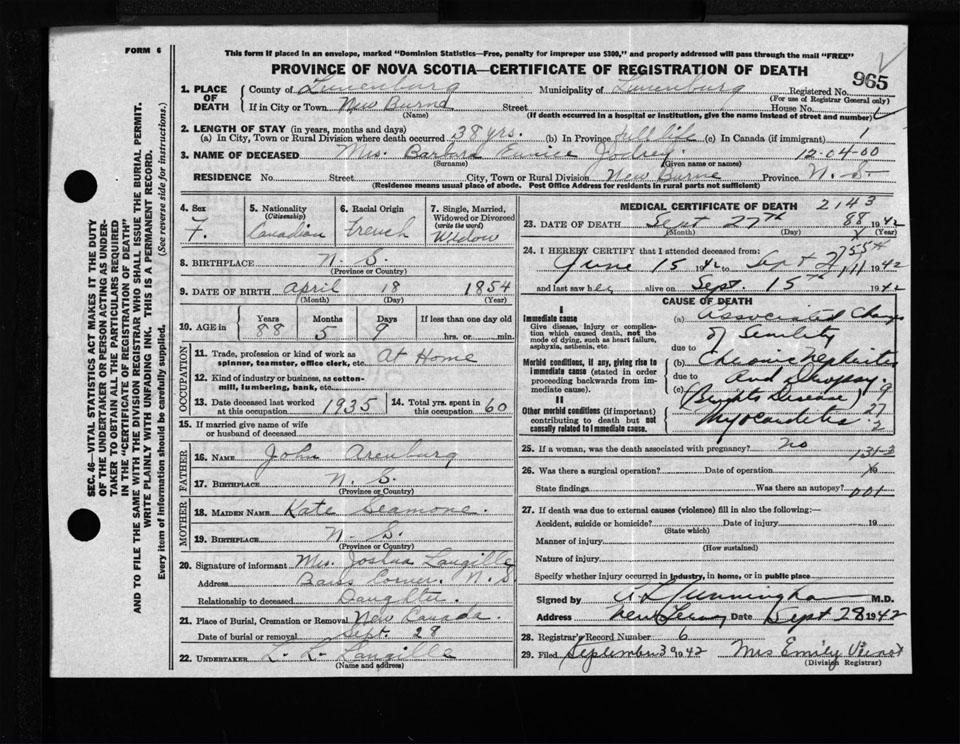 FORM 6
This form if placed in an envelope, marked "Dominion Statistics—Free, penalty for improper use $300," and properly addressed will pass through the mail "FREE"
PROVINCE OF NOVA SCOTIA—CERTIFICATE OF REGISTRATION OF DEATH
965
1. PLACE OF DEATH
County of Lunenburg Municipality of Lunenburg Registered No.
(For use of Registrar General only)
If in City or Town New Burne Street House No.
(Name) (If death occurred in a hospital or institution, give the name instead of street and number)
2. LENGTH OF STAY (in years, months and days)
(a) In City, Town or Rural Division where death occurred 38 yrs. (b) In Province full life (c) In Canada (if immigrant)
3. NAME OF DECEASED Mrs. Barbara Eunice Jodrey 12-04-00
(Surname) (Given name or names)
RESIDENCE No. Street City, Town or Rural Division New Burne Province N. S.
(Residence means usual place of abode. Post Office Address for residents in rural parts not sufficient)
4. Sex F.
5. Nationality (Citizenship) Canadian
6. Racial Origin French
7. Single, Married, Widowed or Divorced (write the word) Widow
8. BIRTHPLACE N. S.
(Province or Country)
9. DATE OF BIRTH April 18 1854
(Month) (Day) (Year)
10. AGE in Years Months Days If less than one day old
88 5 9 hrs. or min.
OCCUPATION
11. Trade, profession or kind of work as spinner, teamster, office clerk, etc. At Home
12. Kind of industry or business, as cotton-mill, lumbering, bank, etc.
13. Date deceased last worked at this occupation 1935
14. Total yrs. spent in this occupation 60
15. If married give name of wife or husband of deceased
FATHER
16. NAME John Arenburg
17. BIRTHPLACE N. S.
(Province or Country)
MOTHER
18. MAIDEN NAME Kate Seamone.
19. BIRTHPLACE N. S.
(Province or Country)
20. Signature of informant Mrs. Joshua Langille
Address Barss Corner. N. S
Relationship to deceased Daughter.
21. Place of Burial, Cremation or Removal New Canada.
Date of burial or removal Sept. 29
22. UNDERTAKER L. L. Langille
(Name and address)
MEDICAL CERTIFICATE OF DEATH 2143
23. DATE OF DEATH Sept 27th 88 1942
(Month) (Day) (Year)
24. I HEREBY CERTIFY that I attended deceased from:
June 15 1942 to Sept 27 1942
and last saw her alive on Sept. 15th 1942
CAUSE OF DEATH
I
Immediate cause
Give disease, injury or complication which caused death, not the mode of dying, such as heart failure, asphyxia, asthenia, etc.
(a) Associated Changes
of Senility
due to
Morbid conditions, if any, giving rise to immediate cause (stated in order proceeding backwards from immediate cause).
(b) Chronic Nephritis
due to and Dropsy
(c) (Brights Disease)
II
Other morbid conditions (if important) contributing to death but not causally related to immediate cause.
Myocarditis
25. If a woman, was the death associated with pregnancy? no
131-2
26. Was there a surgical operation? Date of operation
State findings Was there an autopsy? 001
27. If death was due to external causes (violence) fill in also the following:—
Accident, suicide or homicide? Date of injury 19
(State which)
Manner of injury
(How sustained)
Nature of injury
Specify whether injury occurred in industry, in home, or in public place
Signed by M.D.
Address Date Sept 28 1942
28. Registrar's Record Number 6
29. Filed September 1942 Mrs Emily
(Division Registrar)
SEC. 46—VITAL STATISTICS ACT MAKES IT THE DUTY OF THE UNDERTAKER OR PERSON ACTING AS UNDERTAKER TO OBTAIN ALL THE PARTICULARS REQUIRED IN THE "CERTIFICATE OF REGISTRATION OF DEATH" AND TO FILE THE SAME WITH THE DIVISION REGISTRAR WHO SHALL ISSUE THE BURIAL PERMIT.
WRITE PLAINLY WITH UNFADING INK. THIS IS A PERMANENT RECORD.
Every item of information should be carefully supplied. (See reverse side for instructions.)